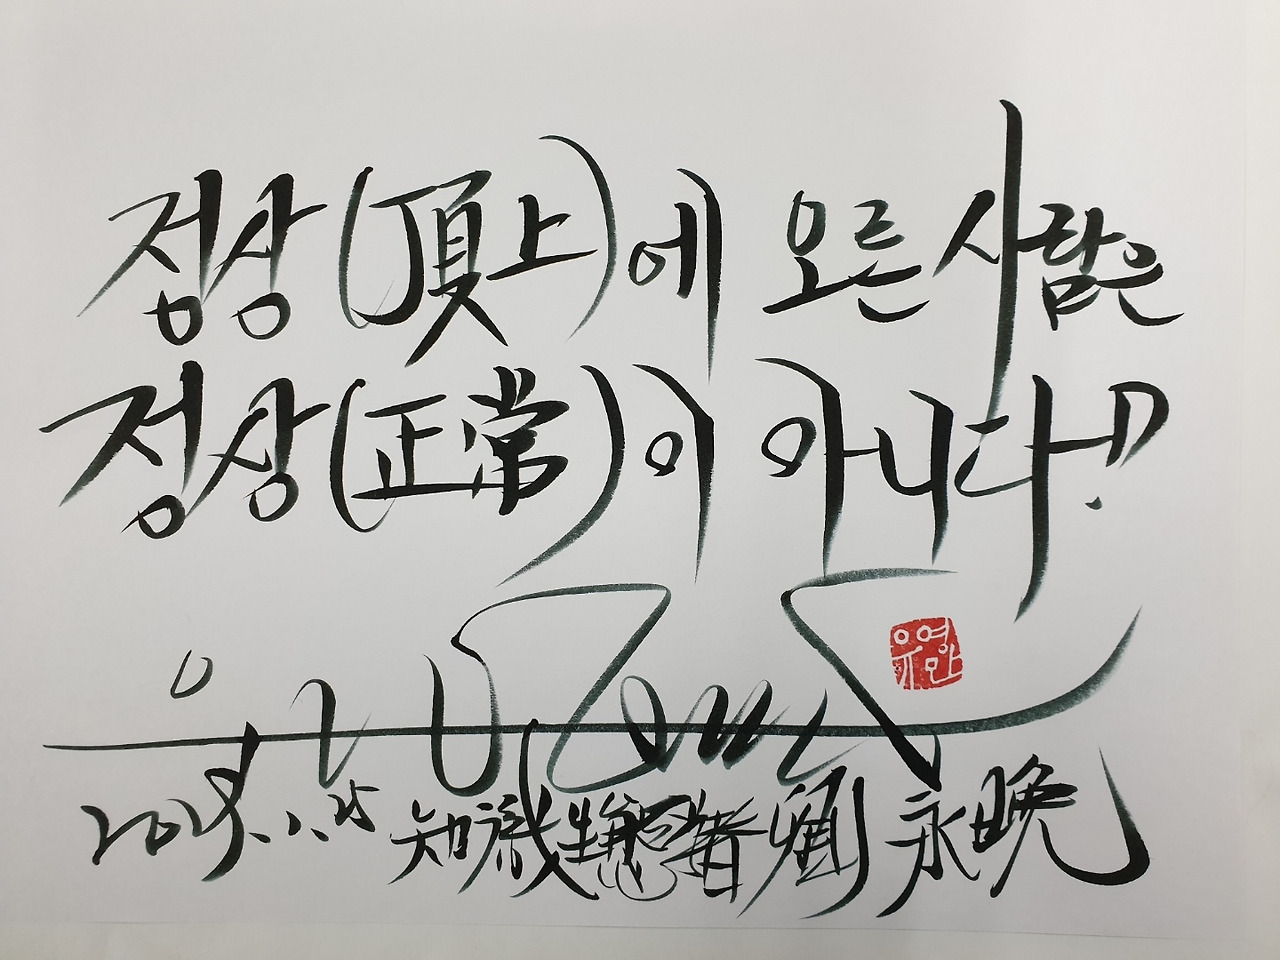 정상(頂上)에 오른 사람은
정상(正常)이 아니다!?
유영만
知識生態學者 劉永晩